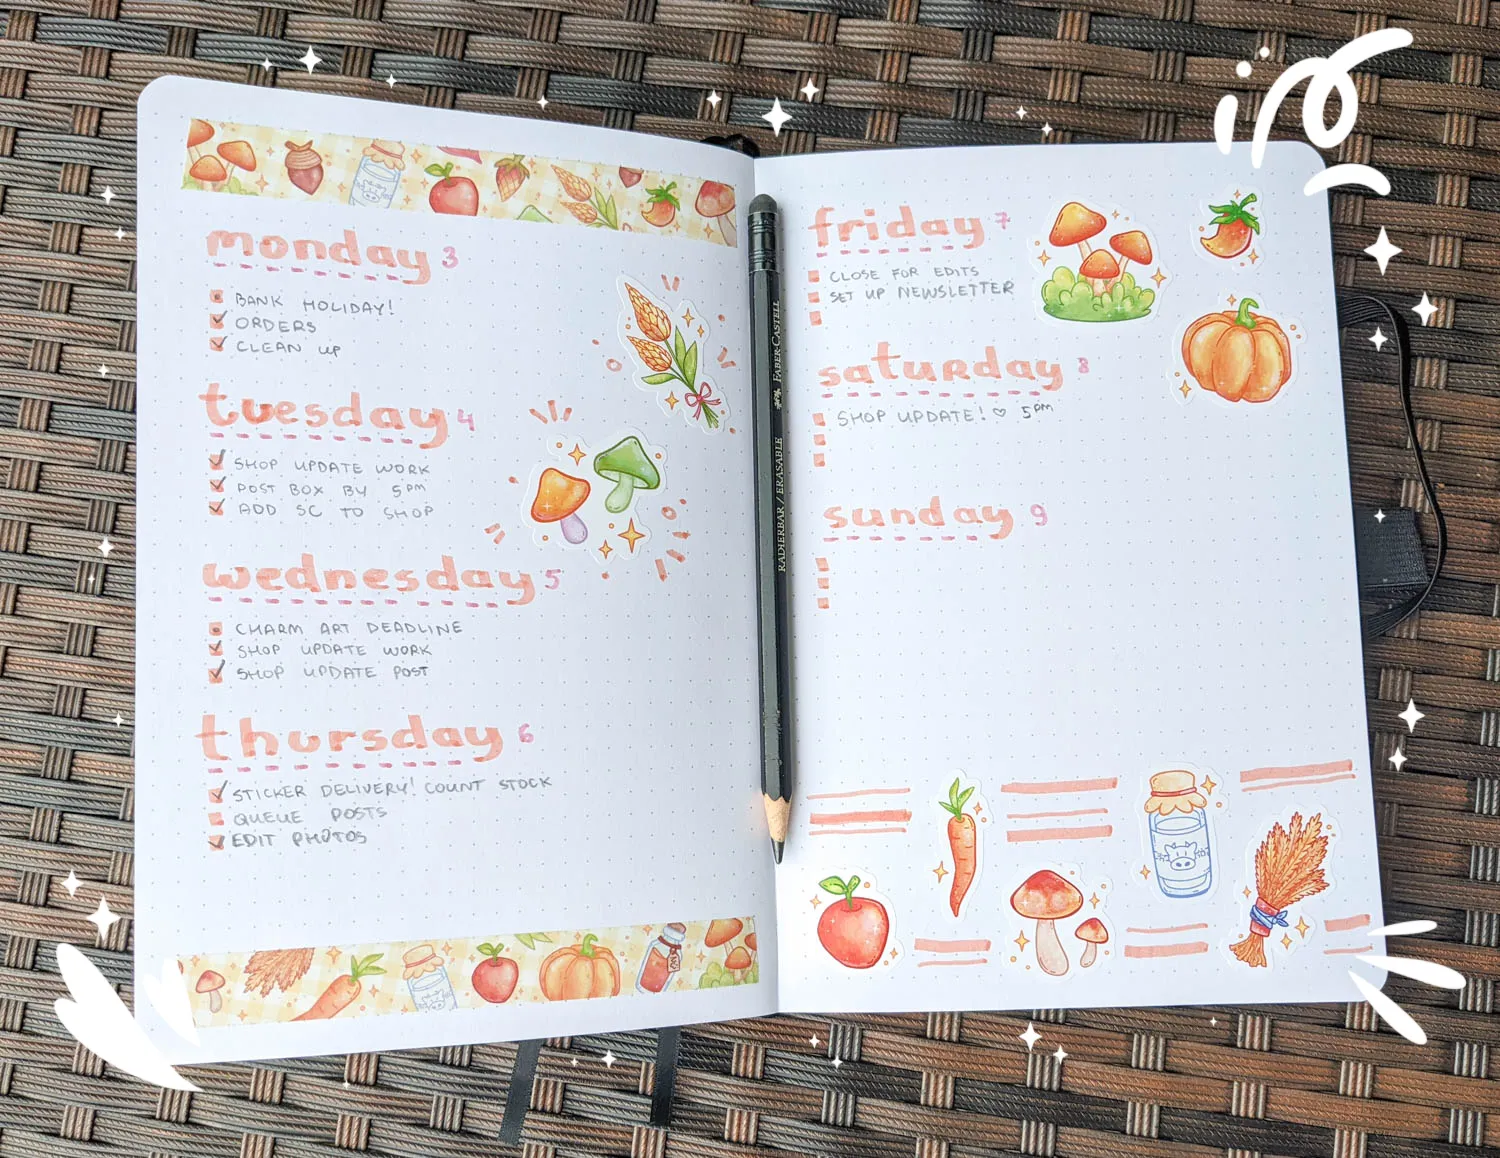 monday 3
BANK HOLIDAY!
ORDERS
CLEAN UP
tuesday 4
SHOP UPDATE WORK
POST BOX BY 5PM
ADD SC TO SHOP
wednesday 5
CHARM ART DEADLINE
SHOP UPDATE WORK
SHOP UPDATE POST
thursday 6
STICKER DELIVERY! COUNT STOCK
QUEUE POSTS
EDIT PHOTOS
FABER-CASTELL
RADIERBAR / ERASABLE
friday 7
CLOSE FOR EDITS
SET UP NEWSLETTER
saturday 8
SHOP UPDATE! ♡ 5PM
sunday 9